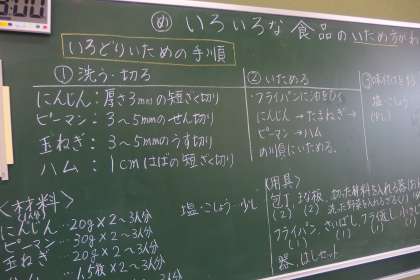 :00
め いろいろな食品のいため方がわ
いろどりいための手順
①洗う・切る
にんじん：厚さ3mmの短ざく切り
ピーマン：3〜5mmのせん切り
玉ねぎ：3〜5mmのうす切り
ハム：1cmはばの短ざく切り
②いためる
・フライパンに油をひく
にんじん→たまねぎ→
ピーマン→ハム
の順にいためる。
塩・こしょう
(少し)
<材料>
にんじん…20g×2〜3人分
ピーマン…30g×2〜3人分
玉ねぎ…20g×2〜3人分
1.5枚×2〜3人分
塩・こしょう・少し
<用具>
包丁、まな板、切った材料を入れる器
(2) (2) 洗った野菜を入れるざる
フライパン、さいばし、フライ返し
(1) (1) (1)
器、はしセット